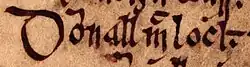 Dōnall m̄ locl̄